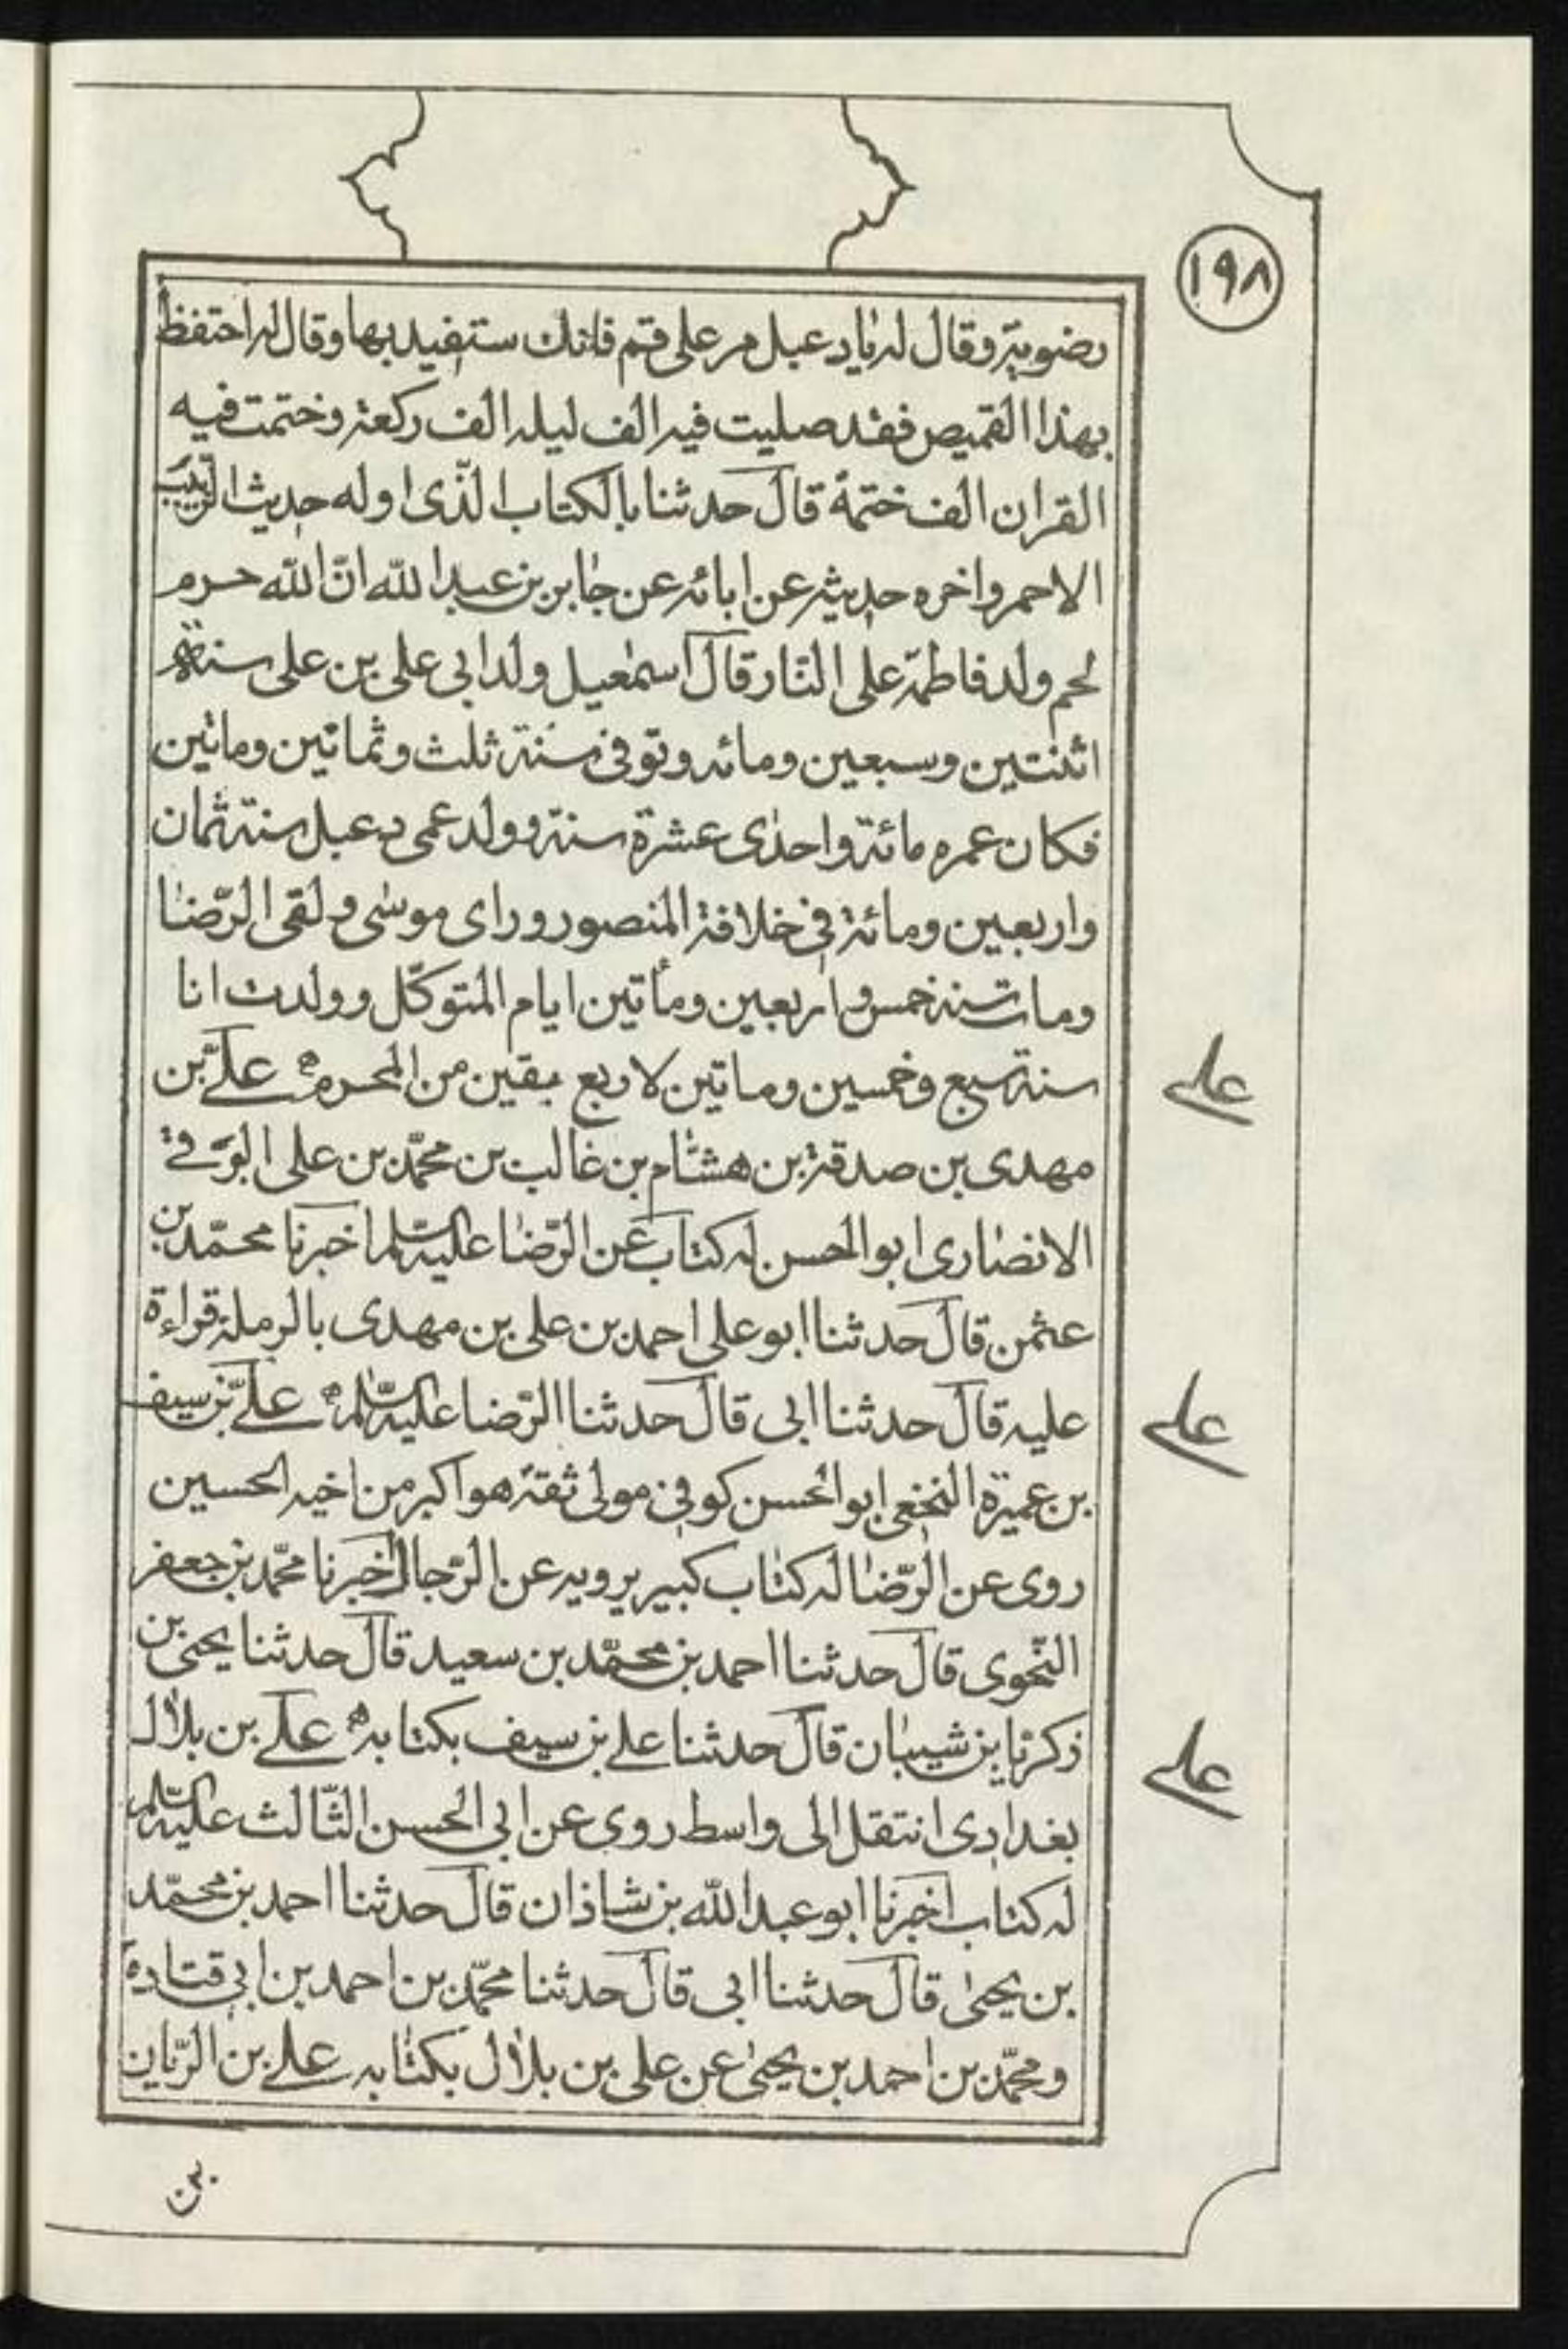 ١٩٨
رضوية وقال له يا دعبل مر على قم فانك ستفيد بها وقال له احتفظ
بهذا القميص فقد صليت فيه الف ليله الف ركعة وختمت فيه
القران الف ختمة قال حدثنا بالكتاب الذّى اوله حديث الزبيب
الاحمر واخره حديثه عن ابائه عن جابر بن عبد الله انّ الله حرم
لحم ولد فاطمة على النّار قال اسمعيل ولد ابى على بن على سنة
اثنتين وسبعين ومائه وتوفى سنة ثلث وثمانين وماتين
فكان عمره مائة واحدى عشرة سنة وولد عمى دعبل سنة ثمان
واربعين ومائة فى خلافة المنصور وراى موسى ولقى الرّضا
ومات سنة خمس واربعين ومأتين ايام المتوكّل وولدت انا
سنة سبع وخمسين وماتين لاربع بقين من المحرم علىّ بن
على
مهدى بن صدقة بن هشام بن غالب بن محمّد بن على الرّقى
الانصارى ابو الحسن له كتاب عن الرّضا عليه السّلم اخبرنا محمّد بن
عثمن قال حدثنا ابو على احمد بن على بن مهدى بالرملة قراءة
عليه قال حدثنا ابى قال حدثنا الرّضا عليه السّلم علىّ بن سيف
على
بن عميرة النخعى ابو الحسن كوفى مولى ثقة هو اكبر من اخيه الحسين
روى عن الرّضا له كتاب كبير يرويه عن الرّجال اخبرنا محمّد بن جعفر
النّحوى قال حدثنا احمد بن محمّد بن سعيد قال حدثنا يحيى بن
زكريّا بن شيبان قال حدثنا على بن سيف بكتابه علىّ بن بلال
على
بغدادى انتقل الى واسط روى عن ابى الحسن الثّالث عليه السّلم
له كتاب اخبرنا ابو عبد الله بن شاذان قال حدثنا احمد بن محمّد
بن يحيى قال حدثنا ابى قال حدثنا محمّد بن احمد بن ابى قتادة
ومحمّد بن احمد بن يحيى عن على بن بلال بكتابه على بن الرّيان
بن